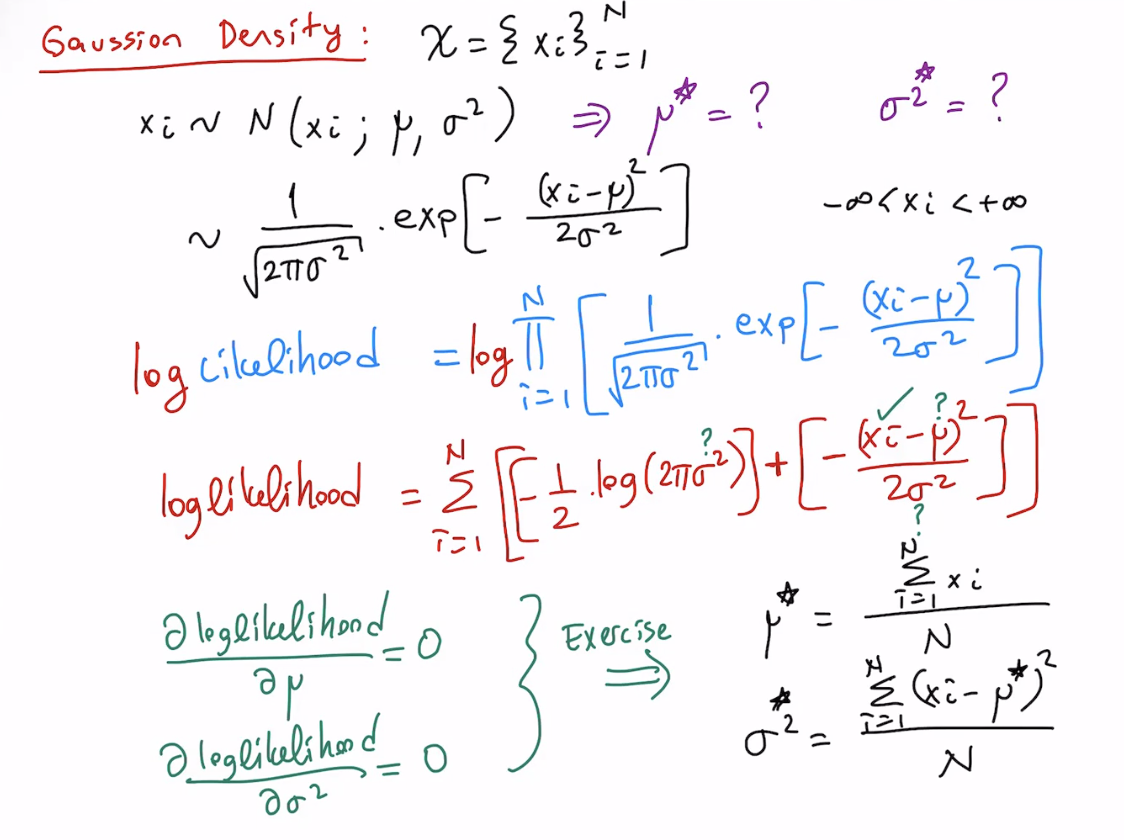 Gaussion Density: X = { xi }_{i=1}^{N}
xi ~ N(xi ; μ, σ²) ⇒ μ* = ? σ²* = ?
~ 1/√(2πσ²) . exp[ - (xi-μ)²/2σ² ] -∞ < xi < +∞
log cikelihood = log ∏_{i=1}^{N} [ 1/√(2πσ²) . exp[ - (xi-μ)²/2σ² ] ]
✓ ?
?
loglikelihood = Σ_{i=1}^{N} [ [ -1/2 . log(2πσ²) ] + [ - (xi-μ)²/2σ² ] ]
?
∂ loglikelihood/∂μ = 0 } Exercise ⇒ μ* = Σ_{i=1}^{N} xi / N
∂ loglikelihood/∂σ² = 0 σ²* = Σ_{i=1}^{N} (xi - μ*)² / N